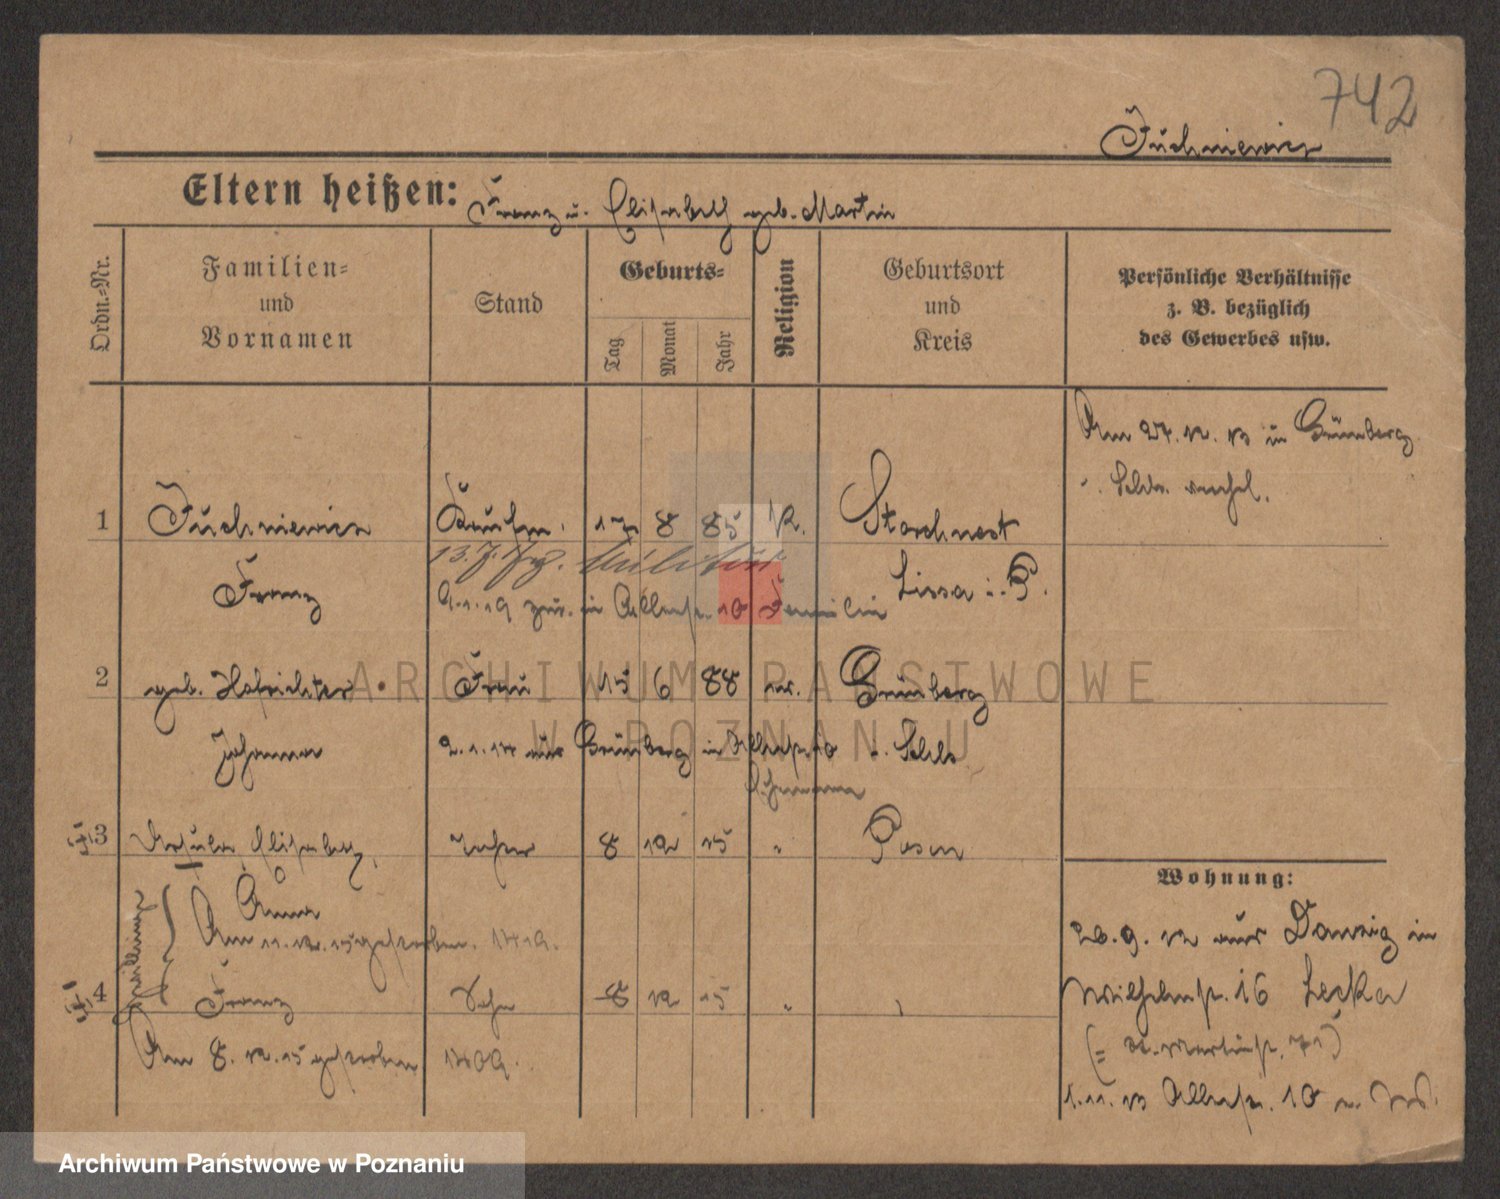 742
Juchniewicz
Eltern heißen: Franz u. Elisabeth geb. Martin
Ordn.-Nr.
Familien-
und
Vornamen
Stand
Geburts-
Tag
Monat
Jahr
Religion
Geburtsort
und
Kreis
Persönliche Verhältnisse
z. B. bezüglich
des Gewerbes usw.
Am 27. 12. 13 in Grünberg
i. Schles. verehel.
1 Juchniewicz Kaufm. 17 8 85 K. Storchnest
13. 7. Militär
Franz Lissa i. P.
9.1.19 zur. in Allerhlgst. 10 Familie
2 geb. Hofrichter Frau 15 6 88 ev. Grünberg
Johanna 2.1.14 aus Grünberg in 10 i. Schles.
3 Ursula Elisabeth Tochter 8 12 15 " Posen
Anna
Am 11. 12. 15 gestorben. 1419.
Zwillinge
4 Franz Sohn 8 12 15 "
Am 8. 12. 15 gestorben 1409.
Wohnung:
26. 9. 12 aus Danzig in
Wilhelmst. 16 Lecka
(= St. Martinst. 71)
1. 11. 13 10
ARCHIWUM PAŃSTWOWE
W POZNANIU
Archiwum Państwowe w Poznaniu